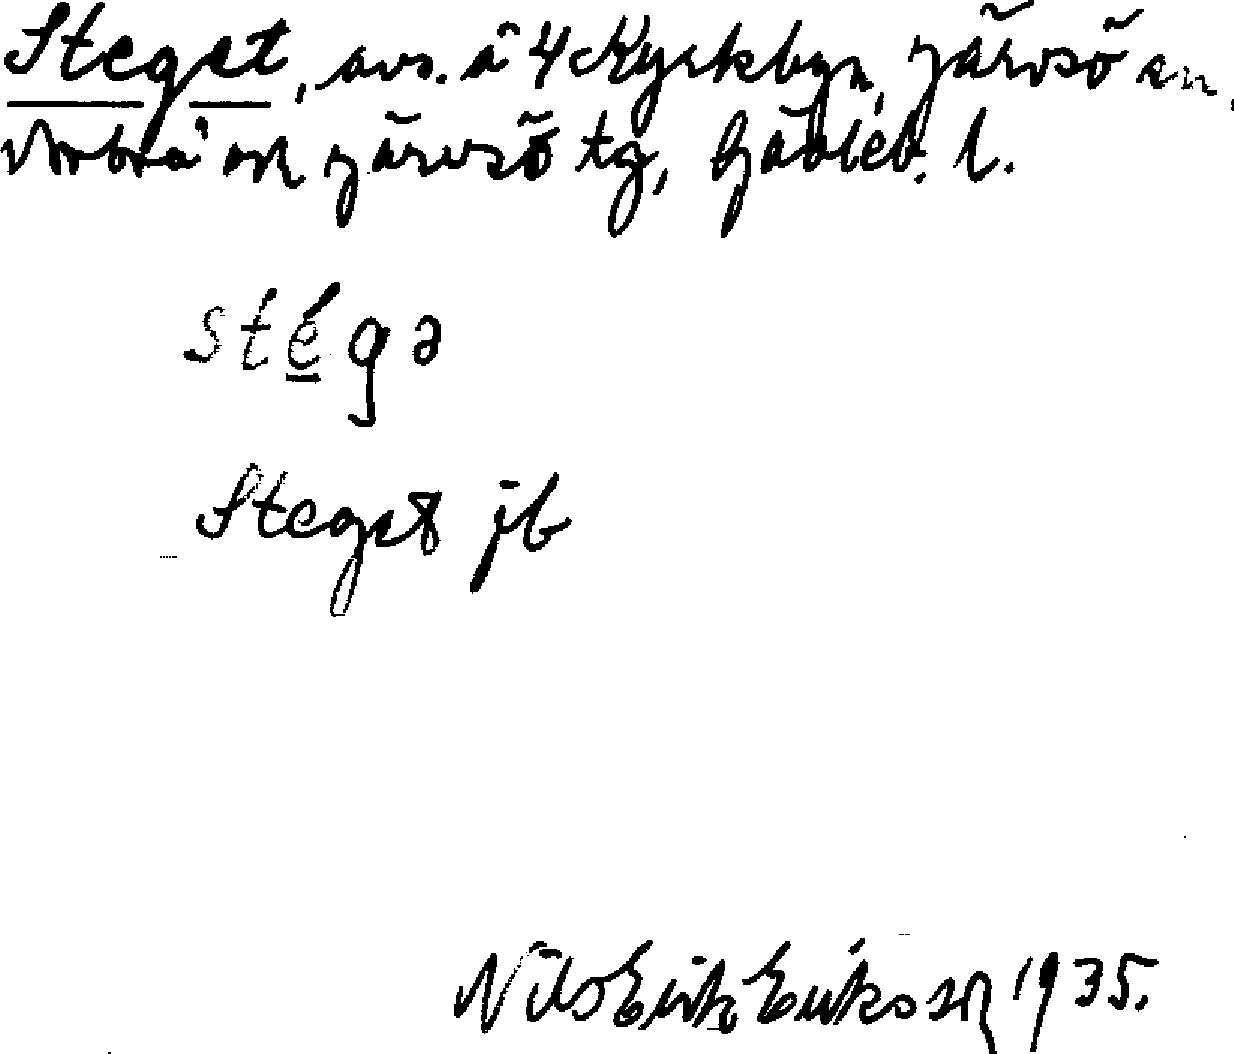 Steget, avs. å 4 Kyrkbyn, Järvsö sn,
Arbrå och Järvsö tg, Gävleb. l.
stégə
Steget jb
Nils Erik Eriksson 1935.